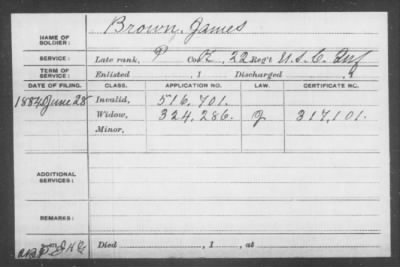 NAME OF SOLDIER: Brown, James
SERVICE: Late rank, P Co. K, 22 Reg't U.S.C. Inf
TERM OF SERVICE: Enlisted , 1 Discharged , 1
DATE OF FILING. CLASS. APPLICATION NO. LAW. CERTIFICATE NO.
1884 June 28 Invalid, 516,701.
Widow, 324,286. G 317,101.
Minor,
ADDITIONAL SERVICES:
REMARKS:
Died , 1 , at